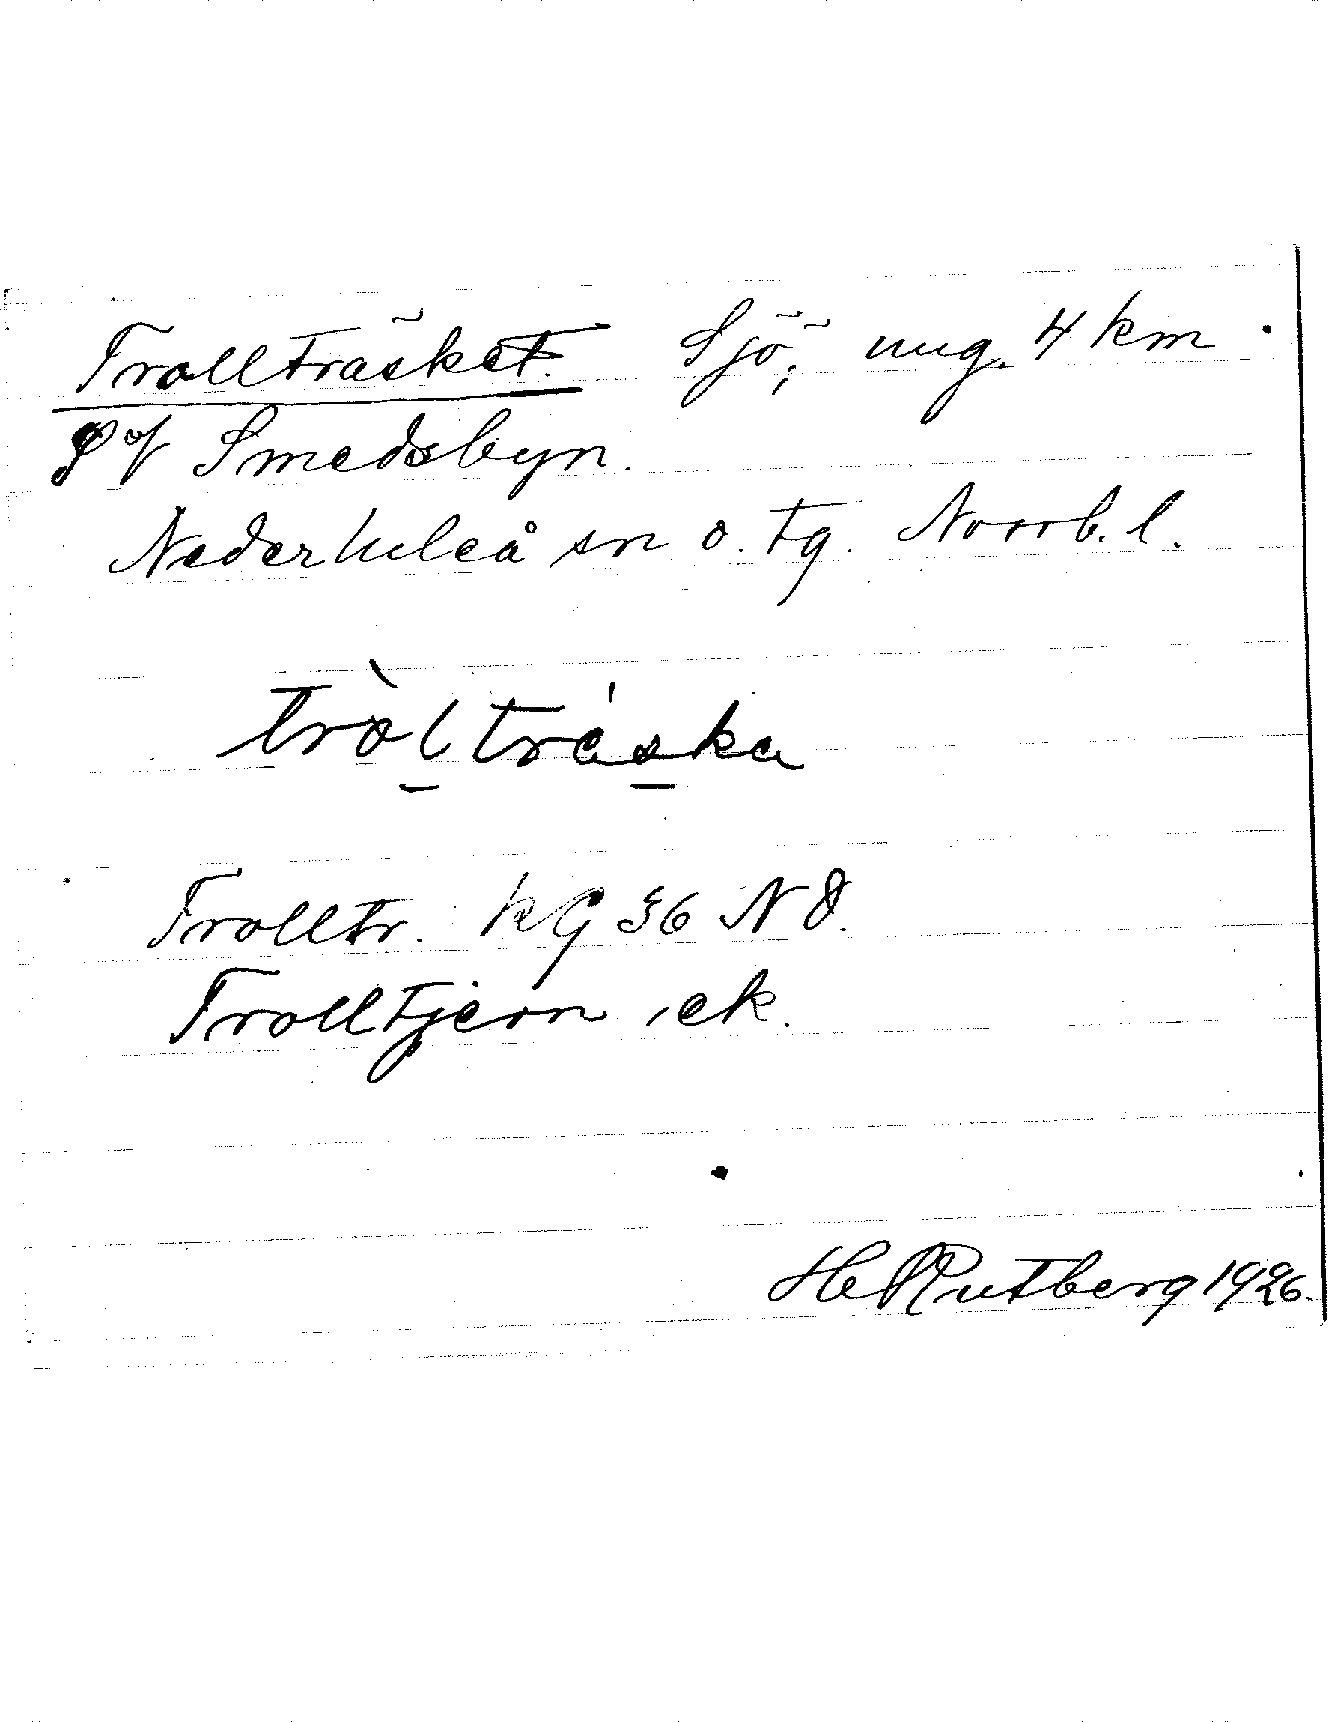 Trollträsket. Sjö, ung. 4 km
S of Smedsbyn.
Nederluleå sn o. tg. Norrb. l.
tròltrá̱ska
Trolltr. KG 36 NO.
Trolltjern, ek.
H Rutberg 1926.